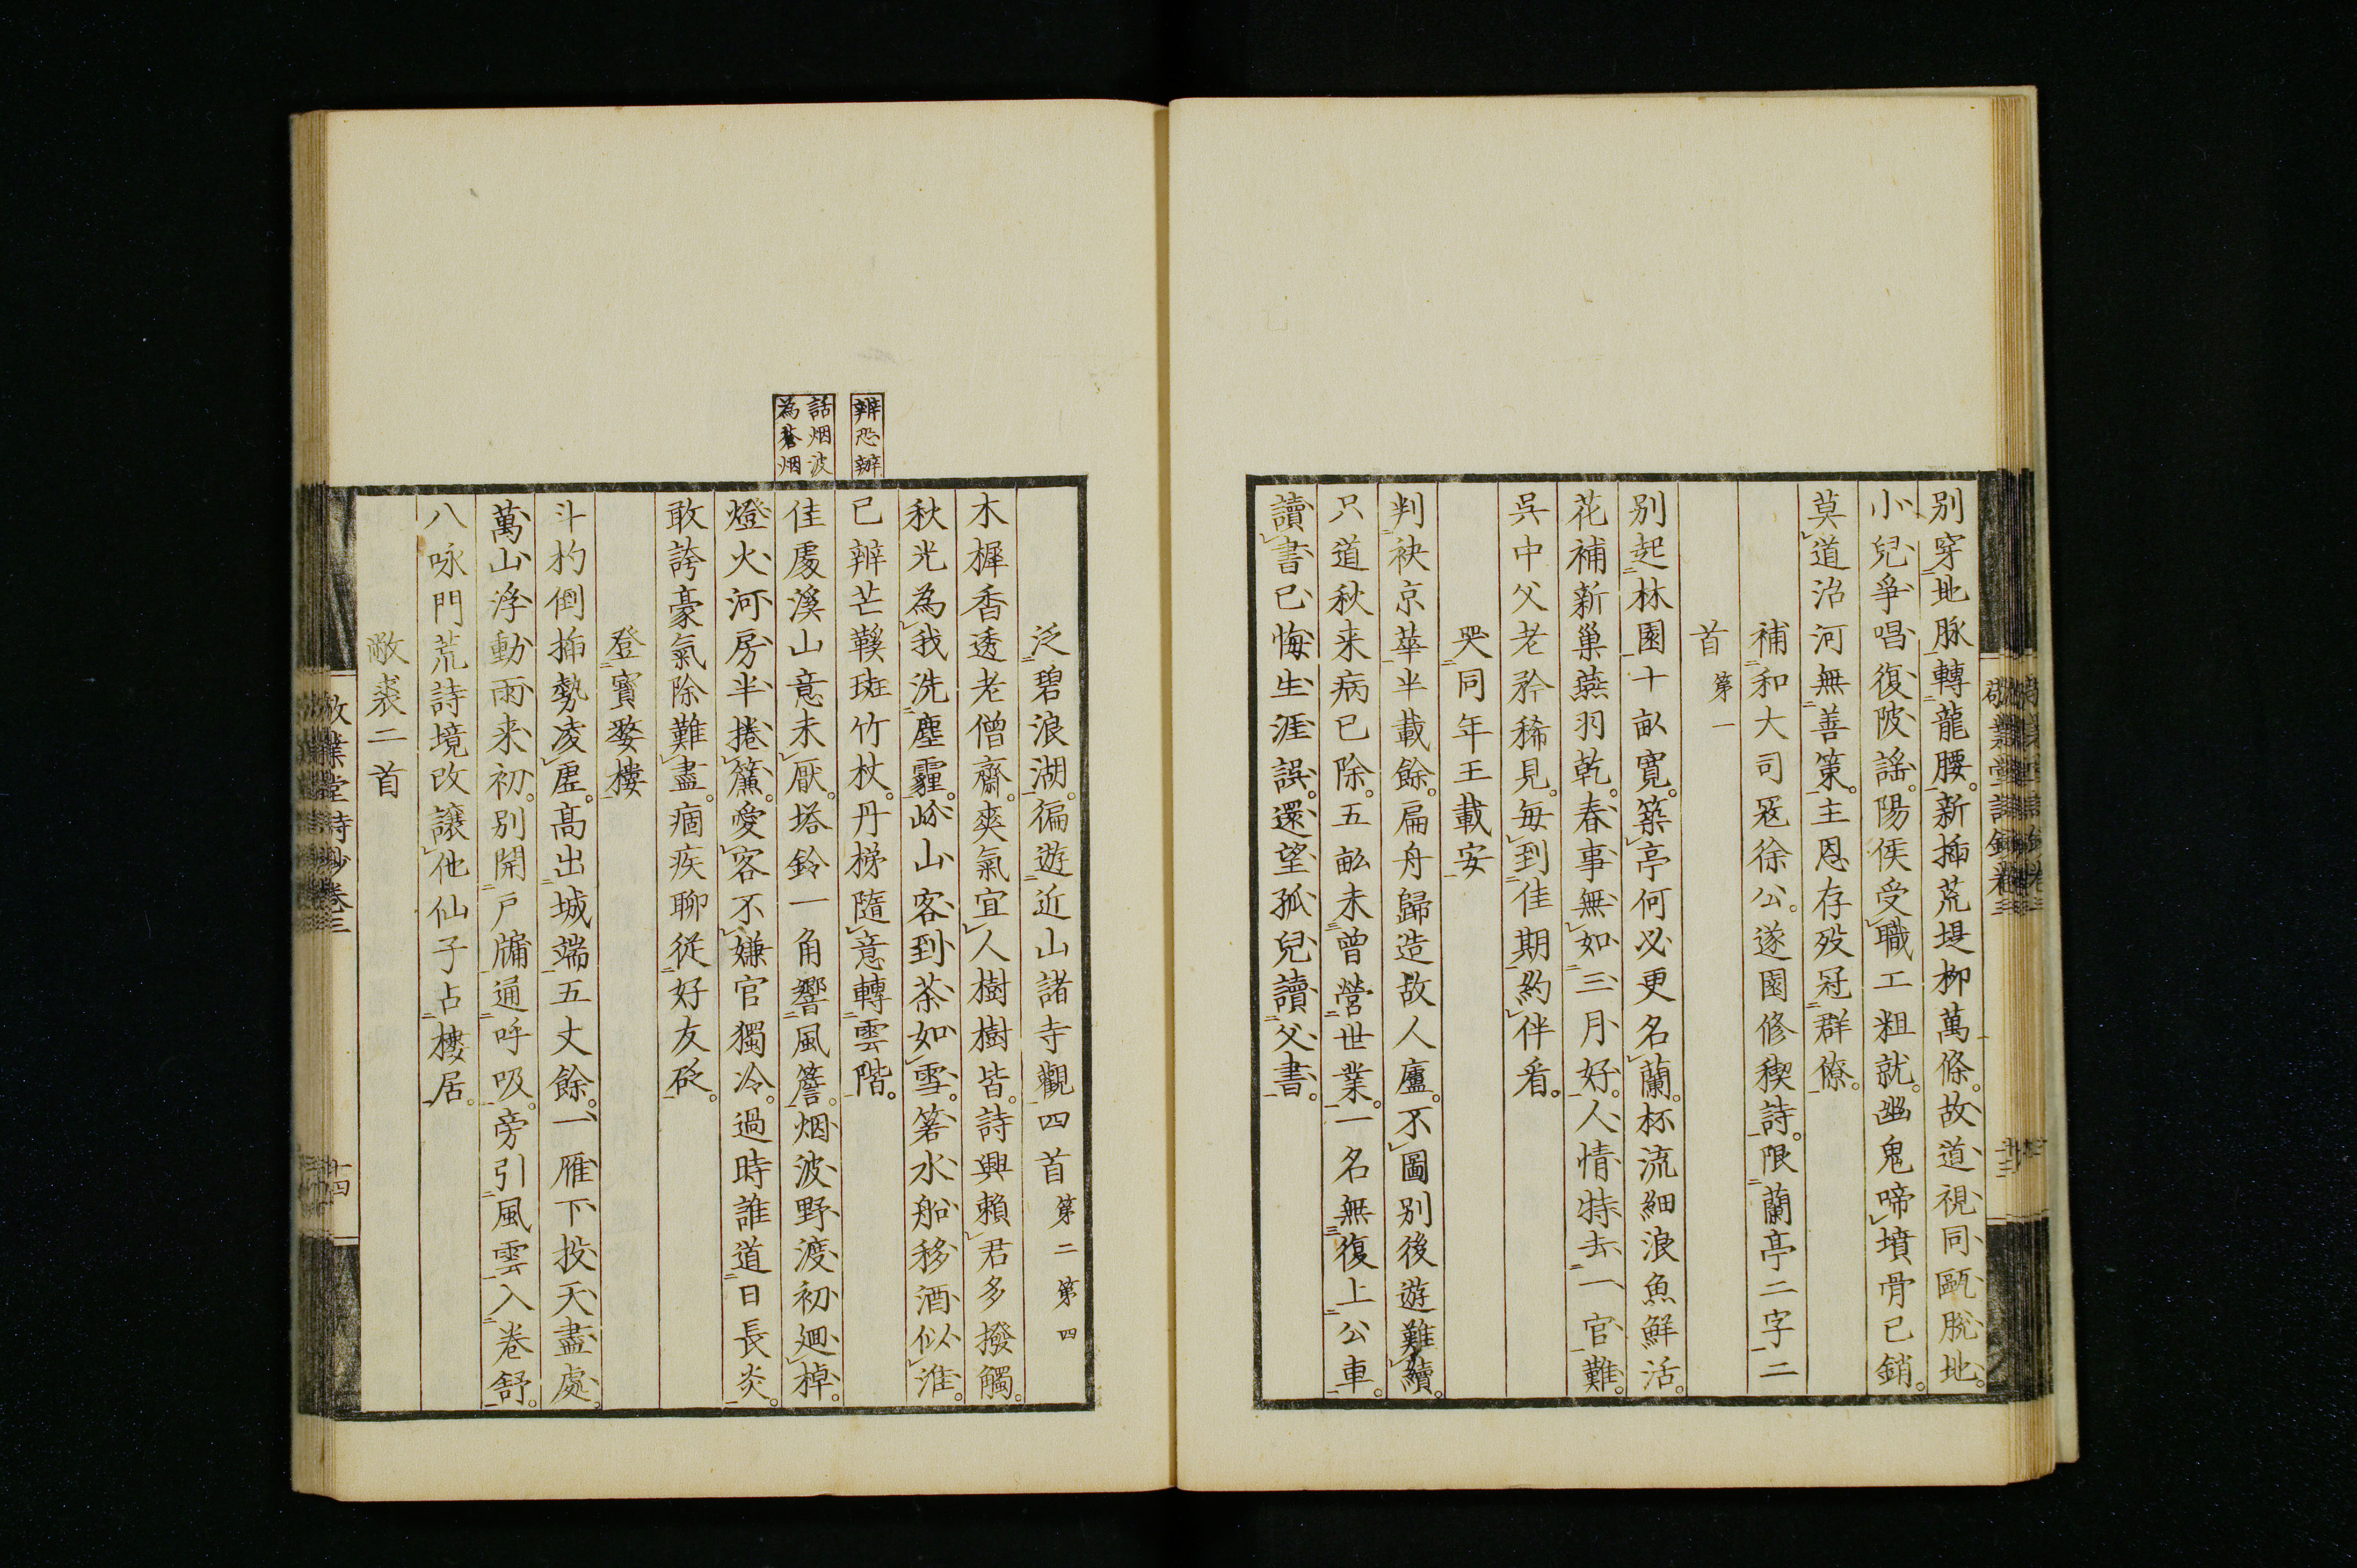 別穿地脉轉龍腰。新揷荒堤柳萬條。故道視同甌脫地。
小兒爭唱復陂謠。陽侯受職工粗就。幽鬼啼墳骨已銷。
莫道治河無善策。主恩存歿冠群僚。
補和大司寇徐公。遂園修禊詩。限蘭亭二字二
首第一
別起林園十畝寬。築亭何必更名蘭。杯流細浪魚鮮活。
花補新巢燕羽乾。春事無如三月好。人情特去一官難。
呉中父老矜稀見。毎到佳期約伴看。
哭同年王載安
判袂京華半載餘。扁舟歸造故人廬。不圖別後遊難續。
只道秋来病已除。五畝未曾營世業。一名無復上公車。
讀書已悔生涯誤。還望孤兒讀父書。
泛碧浪湖。徧遊近山諸寺觀四首第二第四
木樨香透老僧齋。爽氣宜人樹樹皆。詩興賴君多撥觸。
秋光為我洗塵霾。㟃山客到茶如雪。箬水船移酒似淮。
已辨芒鞵斑竹杖。丹梯隨意轉雲階。
佳處溪山意未厭。塔鈴一角響風簷。烟波野渡初廻棹。
燈火河房半捲簾。愛客不嫌官獨冷。過時誰道日長炎。
敢誇豪氣除難盡。痼疾聊従好友砭。
登寳婺樓
斗杓倒揷勢凌虗。高出城端五丈餘。一雁下投天盡處。
萬山浮動雨来初。別開戸牖通呼吸。旁引風雲入卷舒。
八咏門荒詩境改。讓他仙子占樓居。
敝裘二首
辨恐辦
話烟波
為蒼烟
敬業堂詩鈔卷三
十四